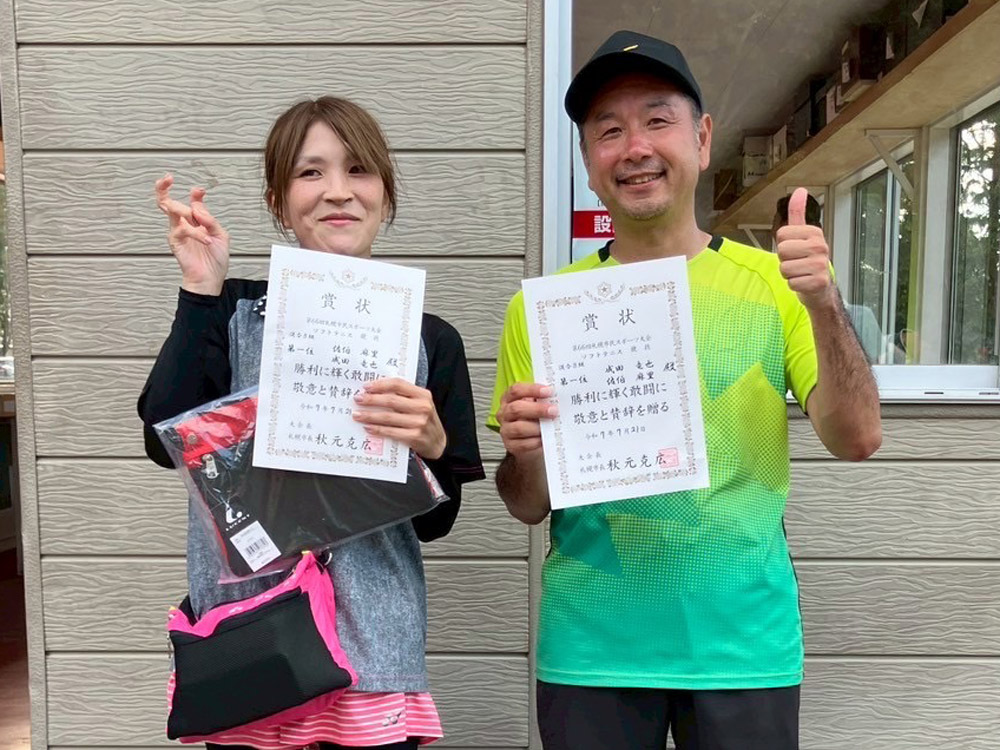 賞状
第66回札幌市民スポーツ大会
ソフトテニス 競技
混合B組
第一位 佐伯 麻里
成田 竜也 殿
勝利に輝く敢闘に
敬意と賛辞を
令和7年7月21
大会長
札幌市長 秋元克広
賞状
第66回札幌市民スポーツ大会
ソフトテニス 競技
混合B組
第一位 成田 竜也
佐伯 麻里 殿
勝利に輝く敢闘に
敬意と賛辞を贈る
令和7年7月21日
大会長
札幌市長 秋元克広
設